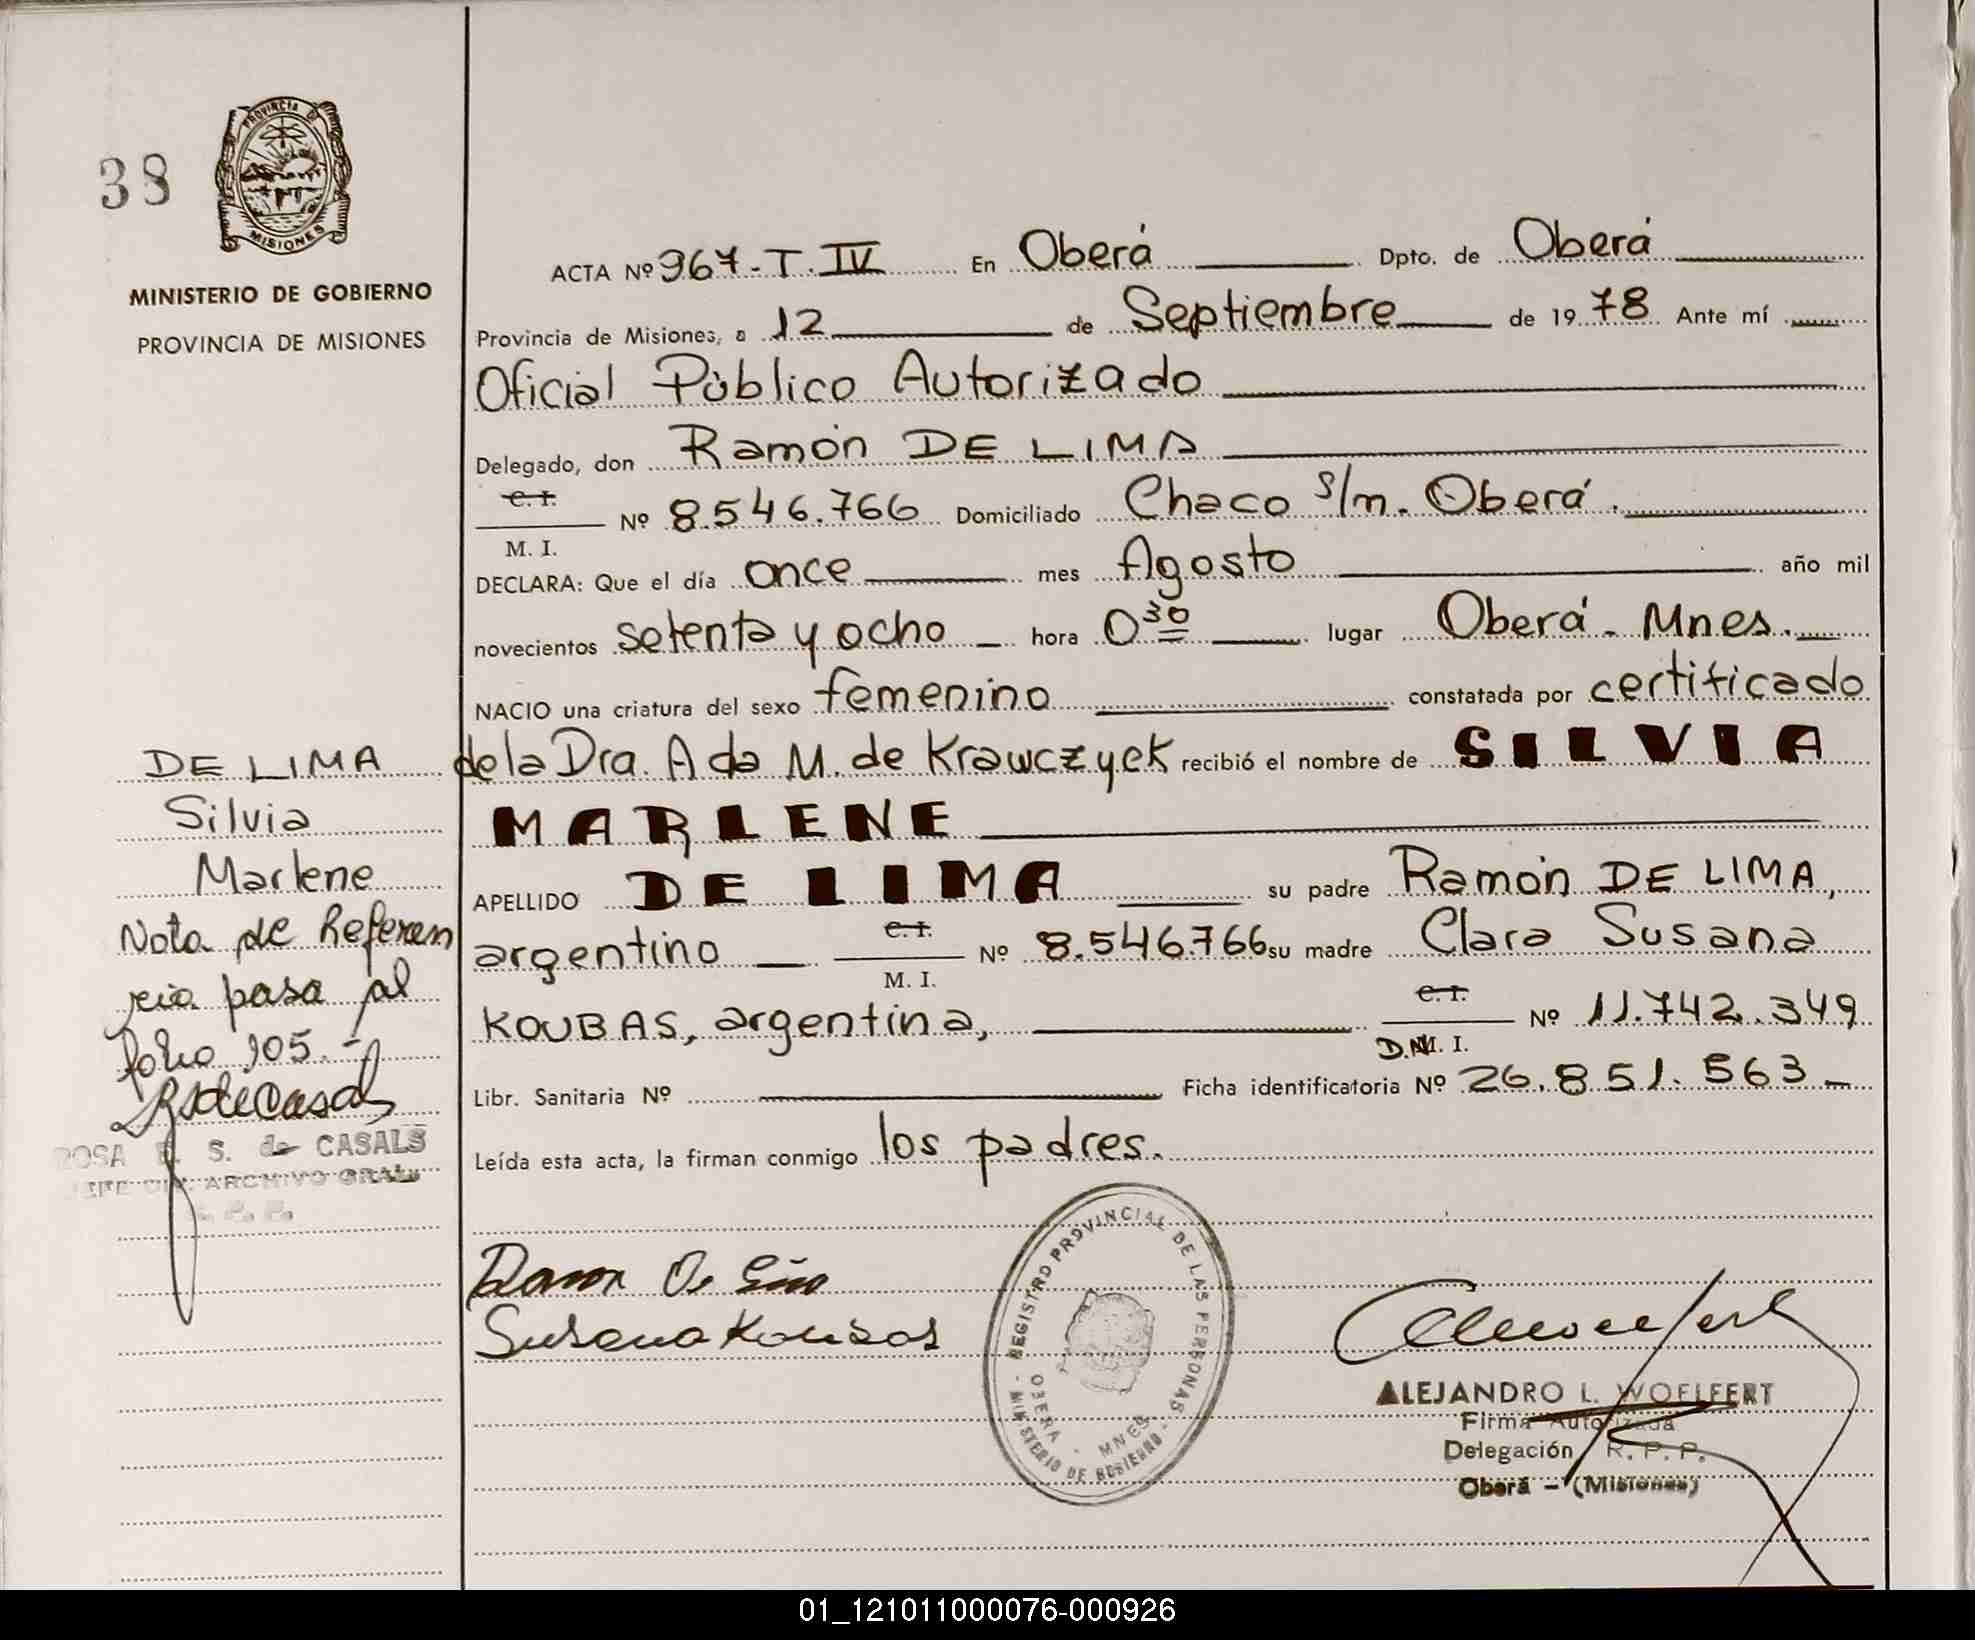 38
PROVINCIA DE
MISIONES
MINISTERIO DE GOBIERNO
PROVINCIA DE MISIONES
ACTA Nº 967-T.IV En Oberá Dpto. de Oberá
Provincia de Misiones, a 12 de Septiembre de 1978 Ante mí
Oficial Público Autorizado
Delegado, don Ramón DE LIMA
C. I.
M. I.
Nº 8.546.766 Domiciliado Chaco s/n. Oberá.
DECLARA: Que el día once mes Agosto año mil
novecientos setenta y ocho hora 0 30 lugar Oberá. Mnes.
NACIO una criatura del sexo femenino constatada por certificado
de la Dra. Ada M. de Krawczyek recibió el nombre de SILVIA
MARLENE
APELLIDO DE LIMA su padre Ramón DE LIMA,
argentino C. I. M. I. Nº 8.546.766 su madre Clara Susana
KOUBAS, argentina, C. I. D.N.I. Nº 11.742.349
Libr. Sanitaria Nº Ficha identificatoria Nº 26.851.563
Leída esta acta, la firman conmigo los padres.
DE LIMA
Silvia
Marlene
Nota de Referen
cia pasa al
folio 105.-
RSdeCasals
ROSA E. S. de CASALS
JEFE DIV. ARCHIVO GRAL.
R. P. P.
Ramon De Lima
Susana Koubas
REGISTRO PROVINCIAL DE LAS PERSONAS
MINISTERIO DE GOBIERNO
OBERA - MNES
ALEJANDRO L. WOELFERT
Firma Autorizada
Delegación R. P. P.
Oberá - (Misiones)
01_121011000076-000926